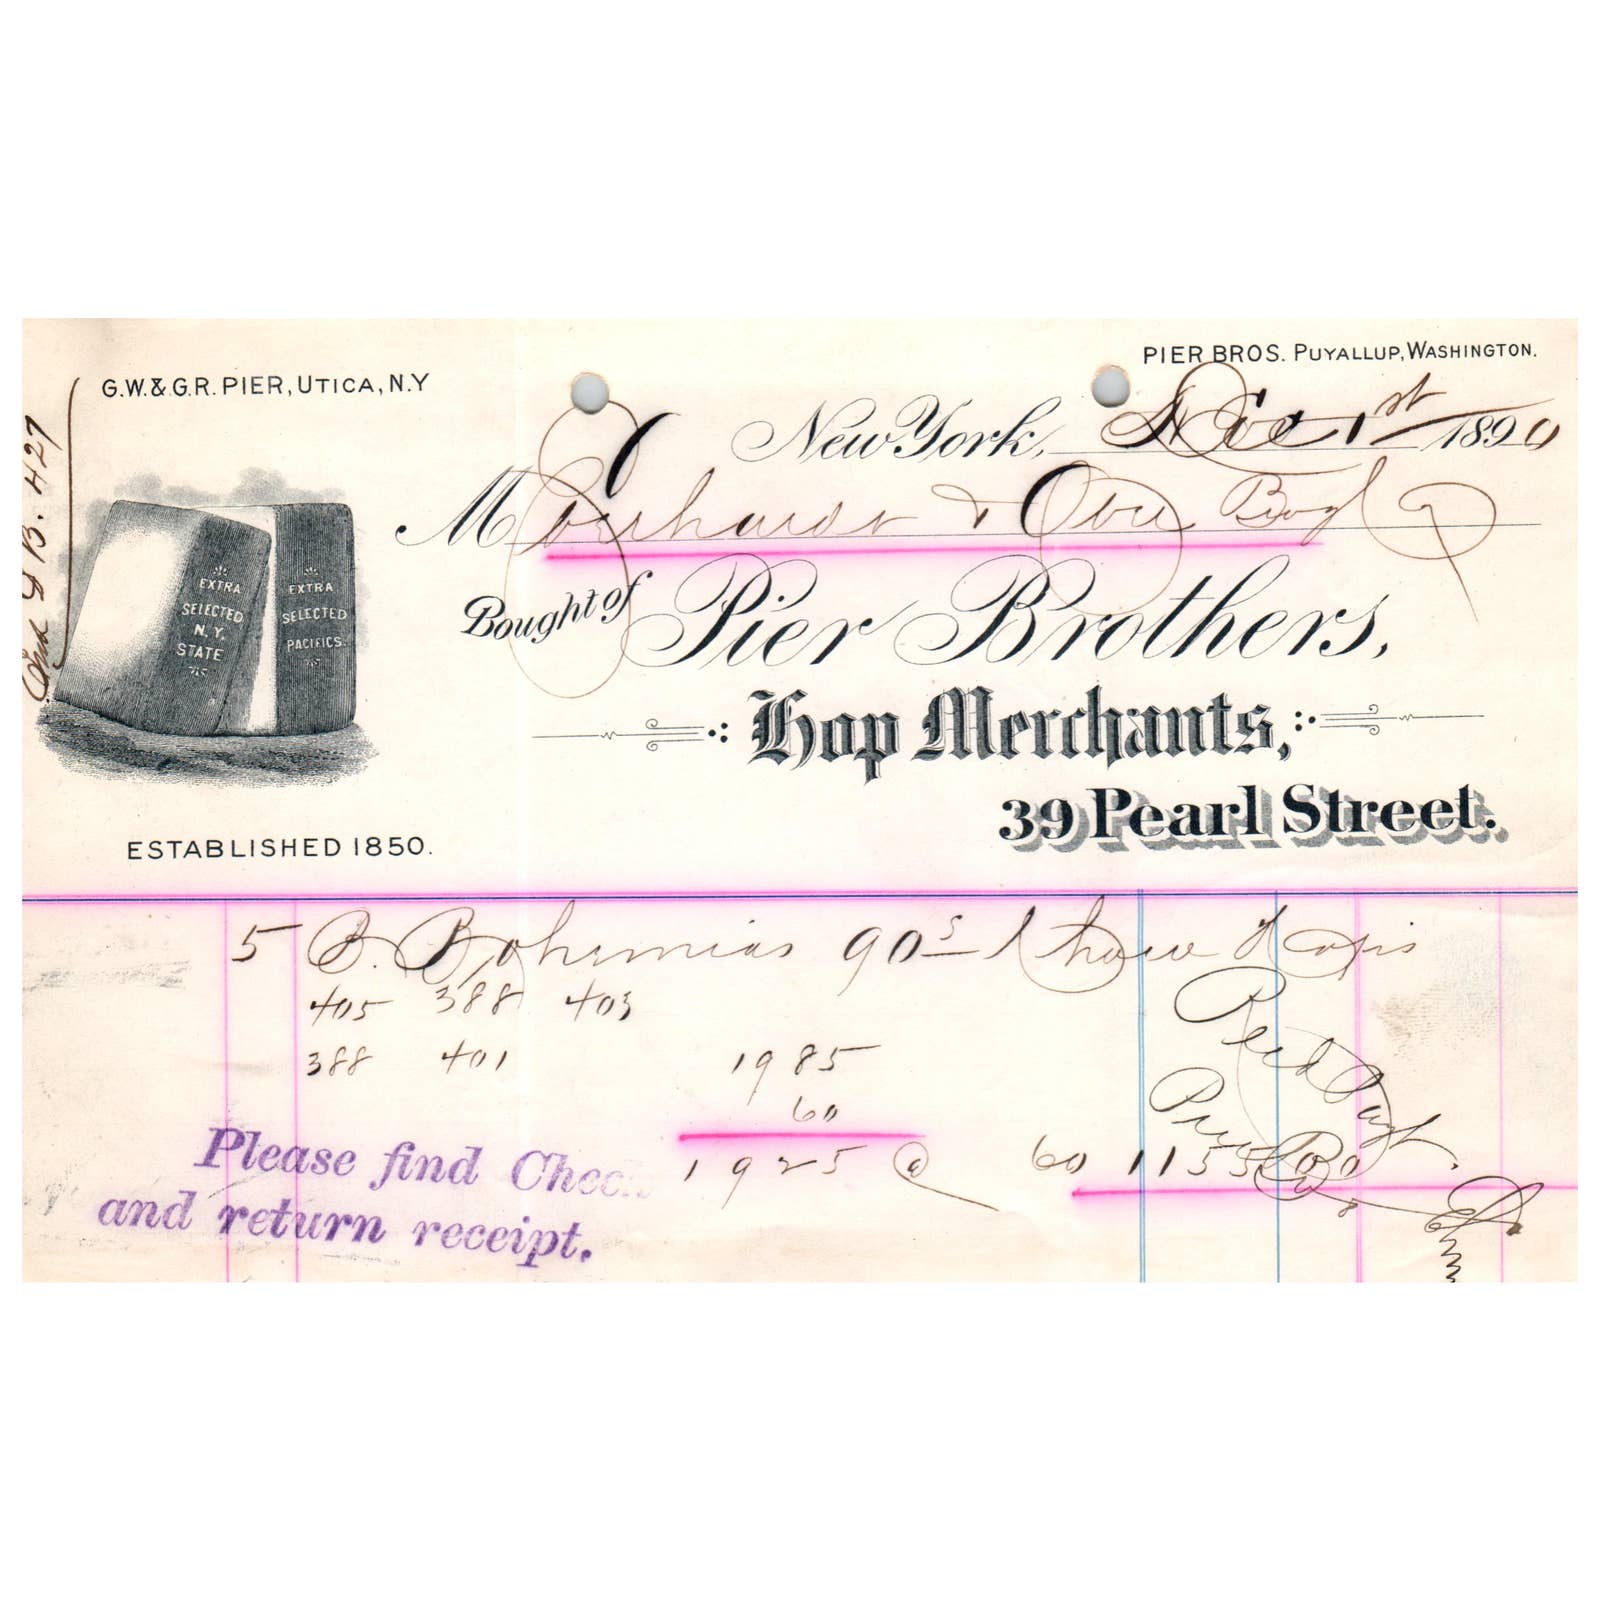 G.W. & G.R. PIER, UTICA, N.Y
PIER BROS. PUYALLUP, WASHINGTON.
New York, Dec 1st 1890
M Eberhardt & Ober Brg
Bought of Pier Brothers,
Hop Merchants,
39 Pearl Street.
B. 427
EXTRA
SELECTED
N.Y.
STATE
EXTRA
SELECTED
PACIFICS.
ESTABLISHED 1850.
5 B. Bohemias 90s
405 388 403
388 401 1985
60
1925 @ 60 1155 00
Please find Check
and return receipt.